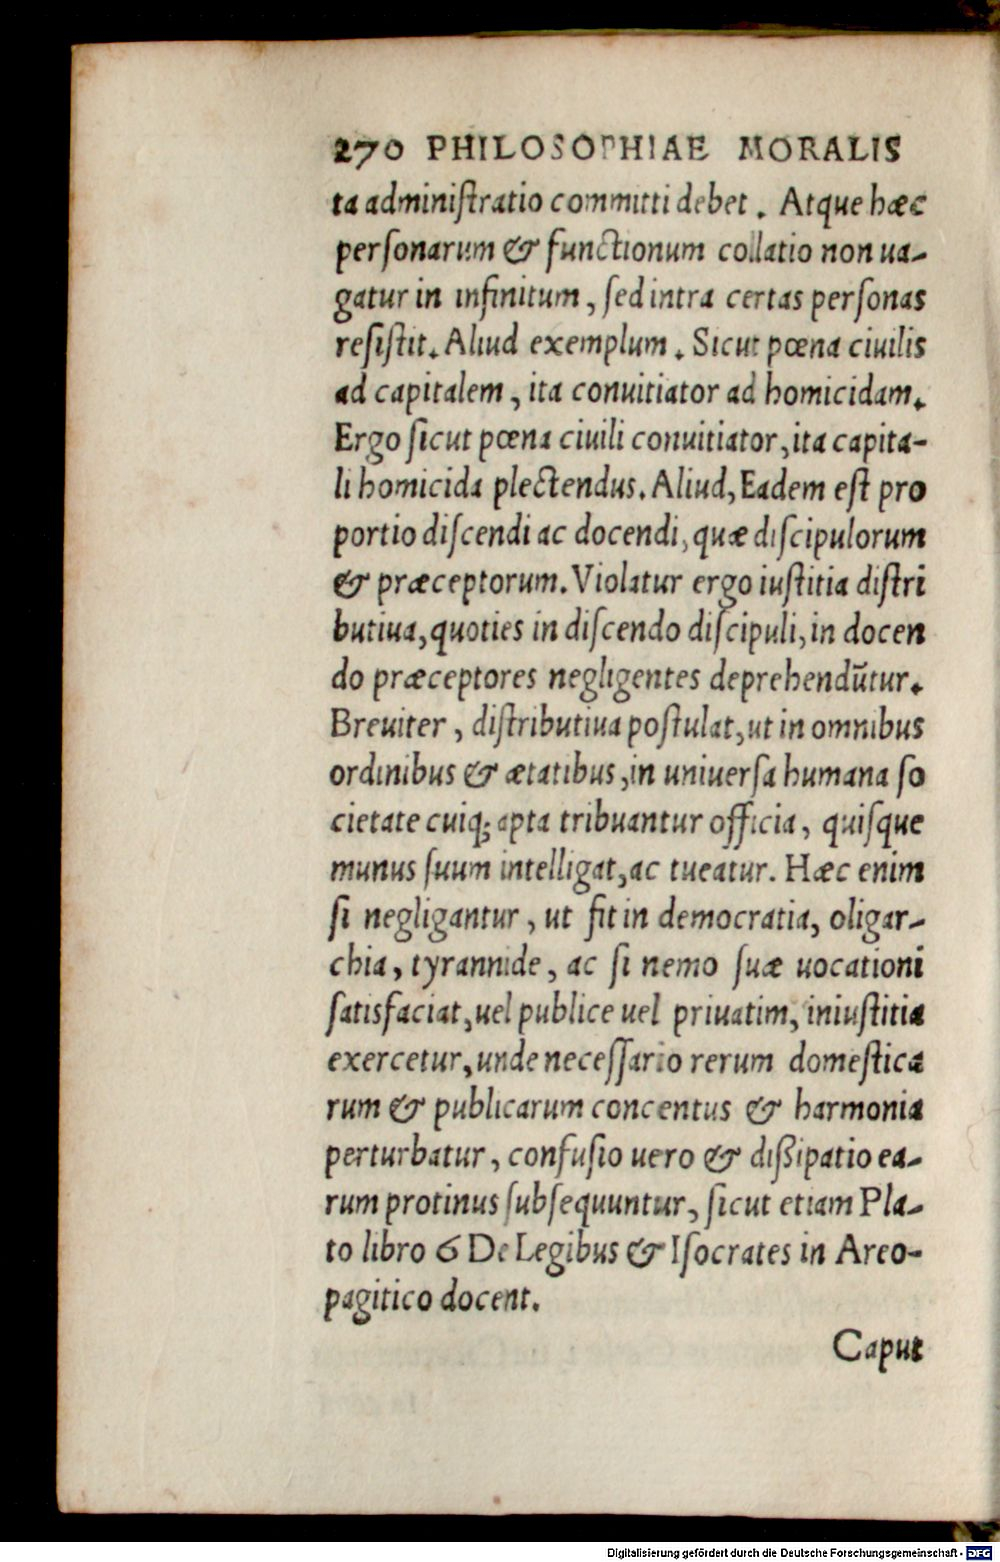 270 PHILOSOPHIAE MORALIS
ta adminiſtratio committi debet. Atque hæc
perſonarum & functionum collatio non ua-
gatur in infinitum, ſed intra certas perſonas
reſiſtit. Aliud exemplum. Sicut pœna ciuilis
ad capitalem, ita conuitiator ad homicidam.
Ergo ſicut pœna ciuili conuitiator, ita capita-
li homicida plectendus. Aliud, Eadem eſt pro
portio diſcendi ac docendi, quæ diſcipulorum
& præceptorum. Violatur ergo iuſtitia diſtri
butiua, quoties in diſcendo diſcipuli, in docen
do præceptores negligentes deprehendūtur.
Breuiter, diſtributiua poſtulat, ut in omnibus
ordinibus & ætatibus, in uniuerſa humana ſo
cietate cuiq; apta tribuantur officia, quiſque
munus ſuum intelligat, ac tueatur. Hæc enim
ſi negligantur, ut fit in democratia, oligar-
chia, tyrannide, ac ſi nemo ſuæ uocationi
ſatisfaciat, uel publice uel priuatim, iniuſtitia
exercetur, unde neceſſario rerum domeſtica
rum & publicarum concentus & harmonia
perturbatur, confuſio uero & diſſipatio ea-
rum protinus ſubſequuntur, ſicut etiam Pla-
to libro 6 De Legibus & Iſocrates in Areo-
pagitico docent.
Caput
Digitalisierung gefördert durch die Deutsche Forschungsgemeinschaft - DFG